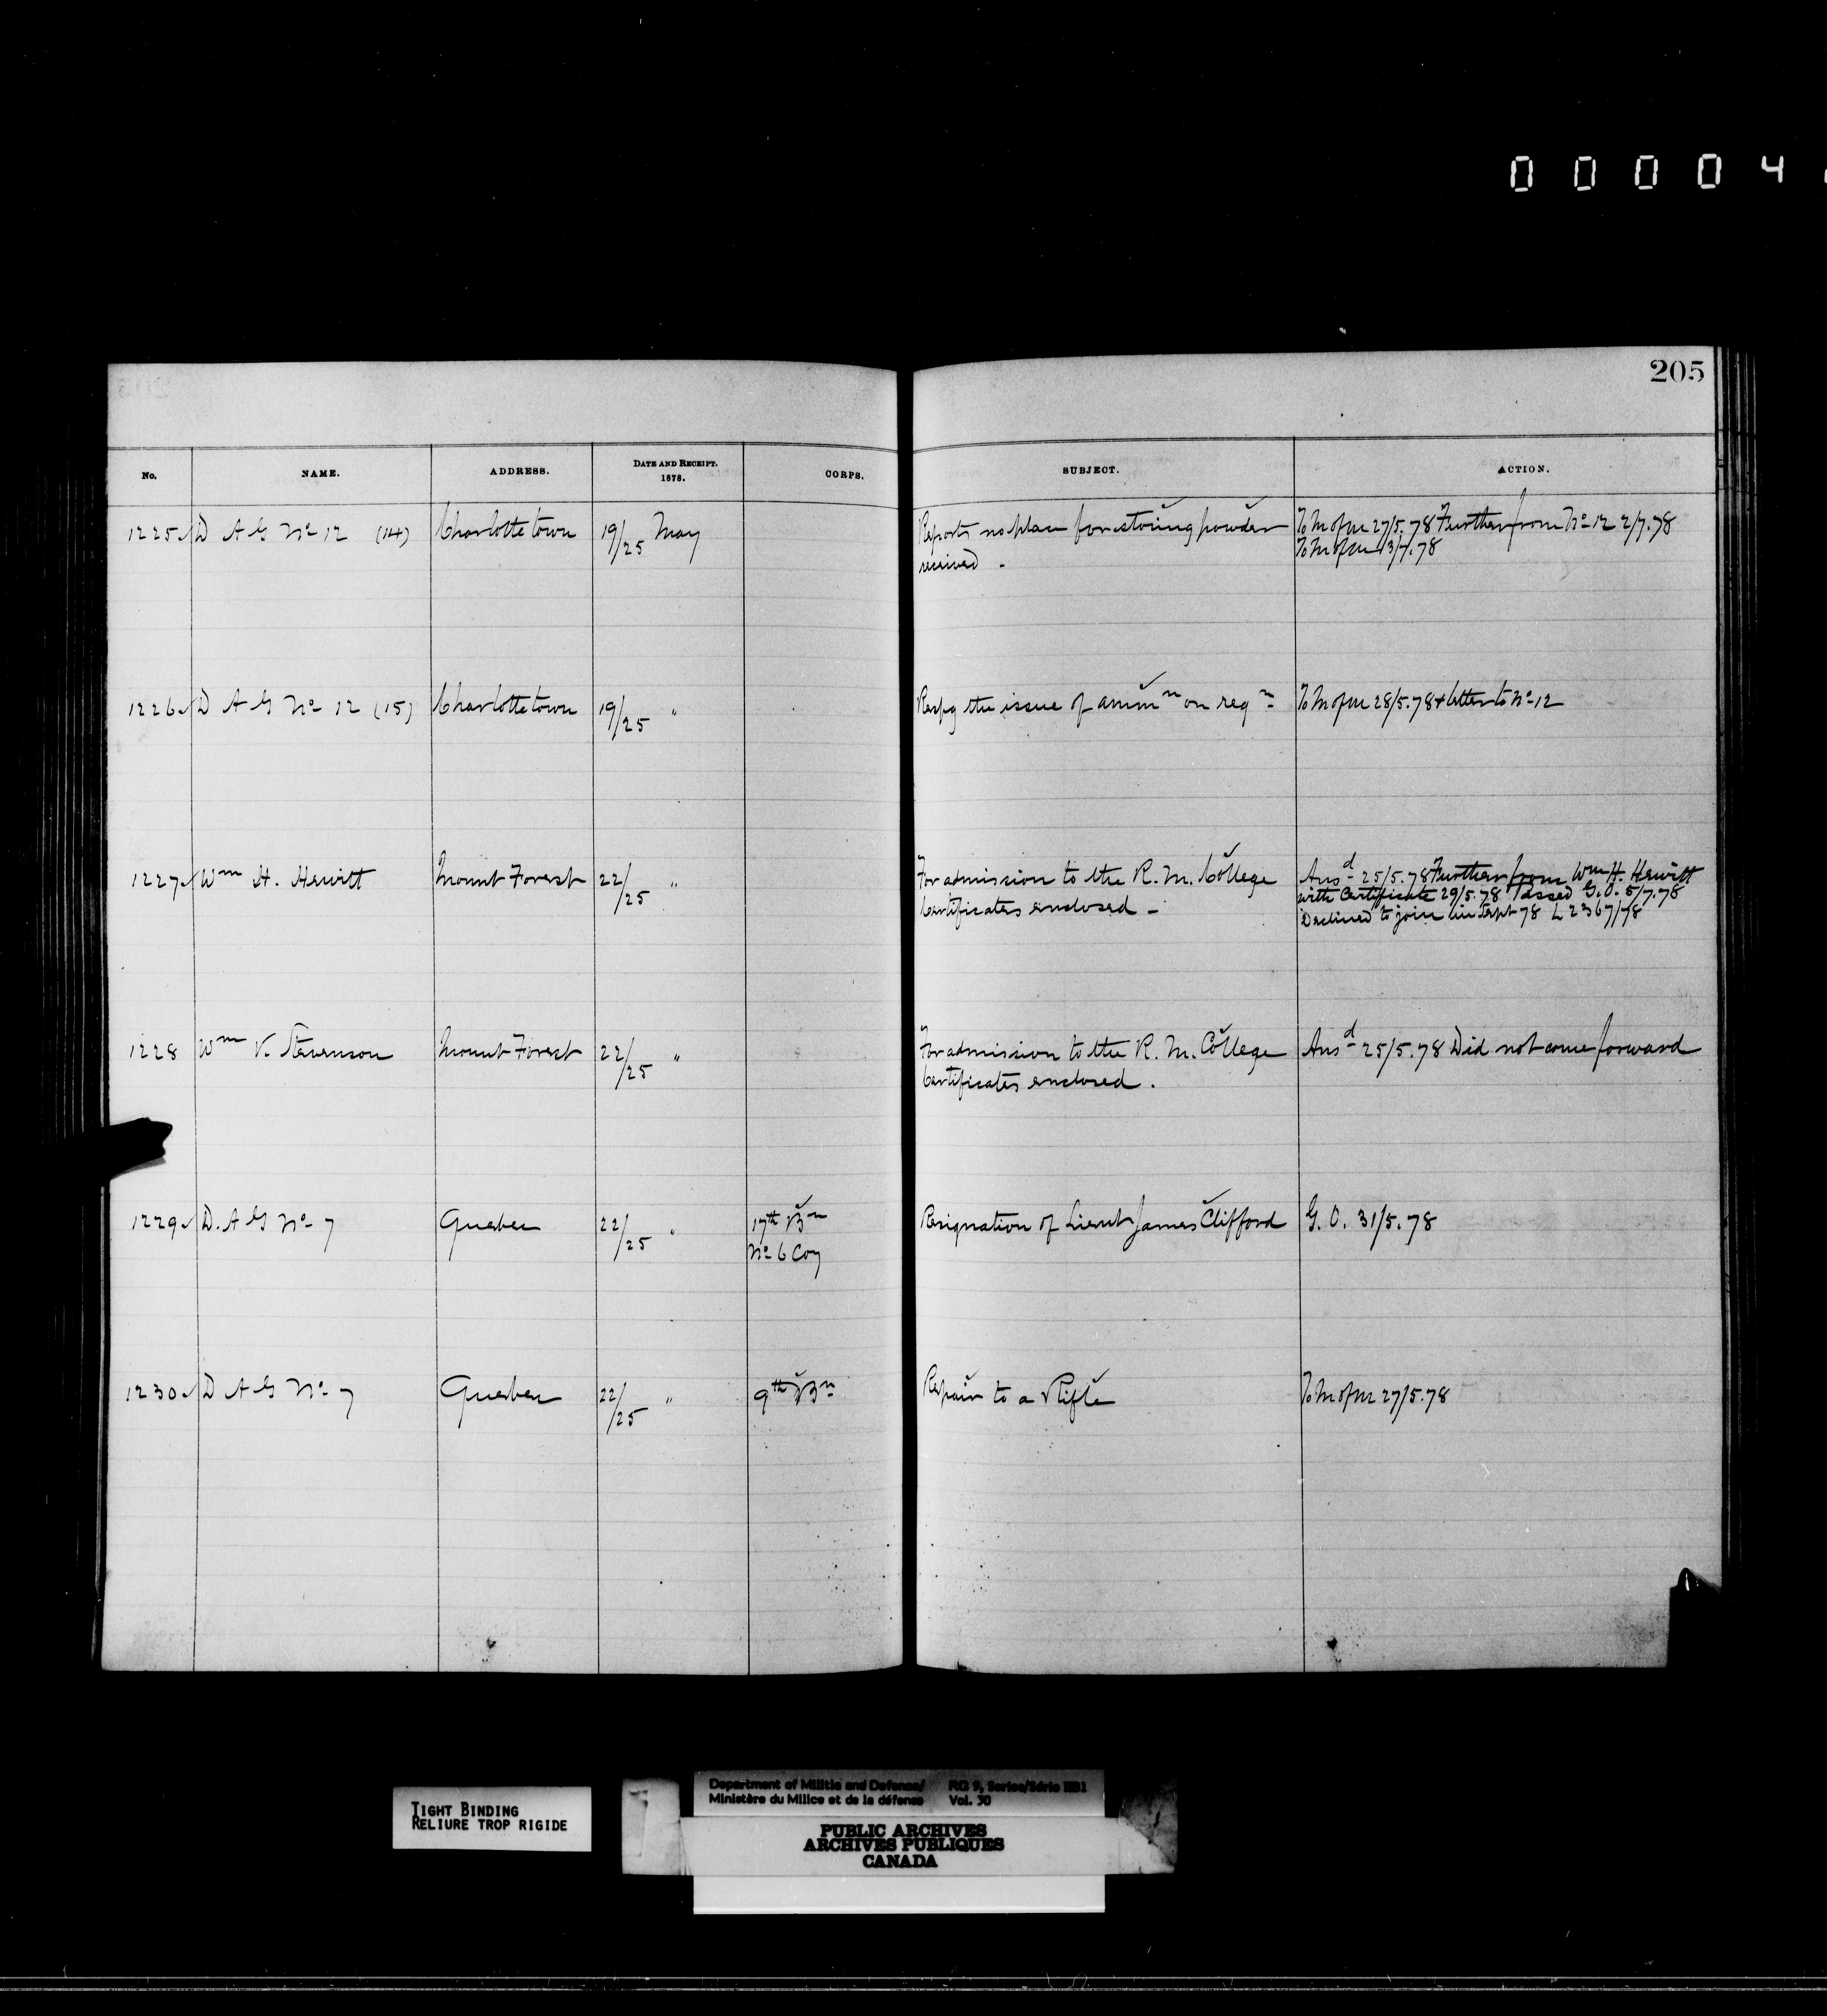 0 0 0 0 4
205
No. NAME. ADDRESS. DATE AND RECEIPT. 1878. CORPS. SUBJECT. ACTION.
1225 D A G No 12 (14) Charlottetown 19/25 May Reports no place for storing powder To M of M 27/5.78 Further from No 12 2/7.78
received - To M of M 13/7.78
1226 D A G No 12 (15) Charlottetown 19/25 " Respg the issue of ammn on reqn To M of M 28/5.78 + letter to No 12
1227 Wm H. Hewitt Mount Forest 22/25 " For admission to the R. M. College Ansd 25/5.78 Further from Wm H. Hewitt
Certificates enclosed - with Certificate 29/5.78 Passed G.O. 5/7.78
Declined to join in Sept 78 L 2367/78
1228 Wm V. Stevenson Mount Forest 22/25 " For admission to the R. M. College Ansd 25/5.78 Did not come forward
Certificates enclosed.
1229 D. A G No 7 Quebec 22/25 " 17th Bn Resignation of Lieut James Clifford G. O. 31/5.78
No 6 Coy
1230 D A G No 7 Quebec 22/25 " 9th Bn Repair to a Rifle To M of M 27/5.78
TIGHT BINDING
RELIURE TROP RIGIDE
Department of Militia and Defence/ RG 9, Series/Série IIB1
Ministère du Milice et de la défense Vol. 30
PUBLIC ARCHIVES
ARCHIVES PUBLIQUES
CANADA